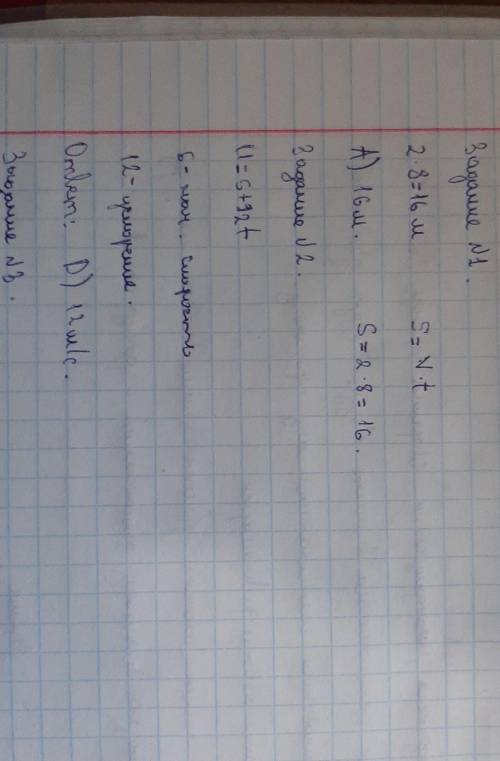 Задание №1.
2·8=16 м S=V·t
А) 16 м. S=2·8=16.
Задание №2.
U=5+92t
5= нач. скорость
12= ускорение.
Ответ: D) 12 м/с.
Задание №3.